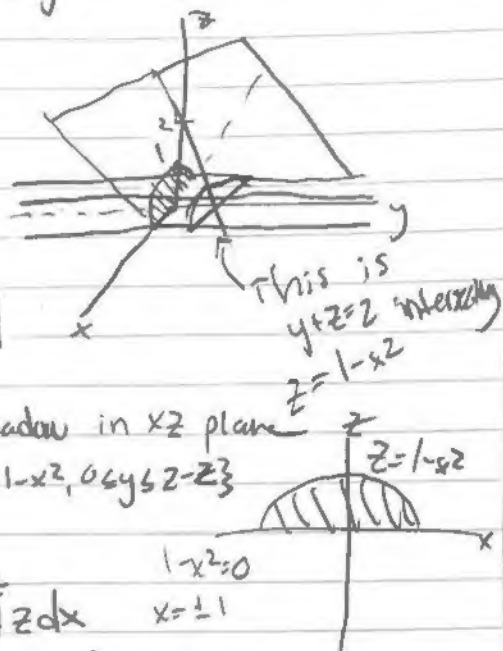 z
2
1
y
x
This is
y+z=2 intersecting
z=1-x²
in xz plane
1-x², 0≤y≤2-z}
z
z=1-x²
x
1-x²=0
x=±1
z dx